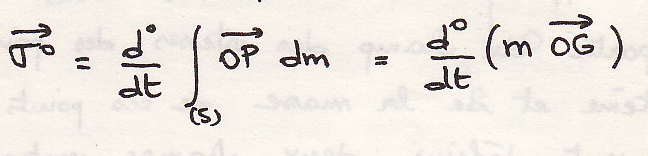 $\overrightarrow{\sigma^o} = \frac{d^o}{dt} \int_{(S)} \overrightarrow{OP} \, dm = \frac{d^o}{dt} (m \, \overrightarrow{OG})$